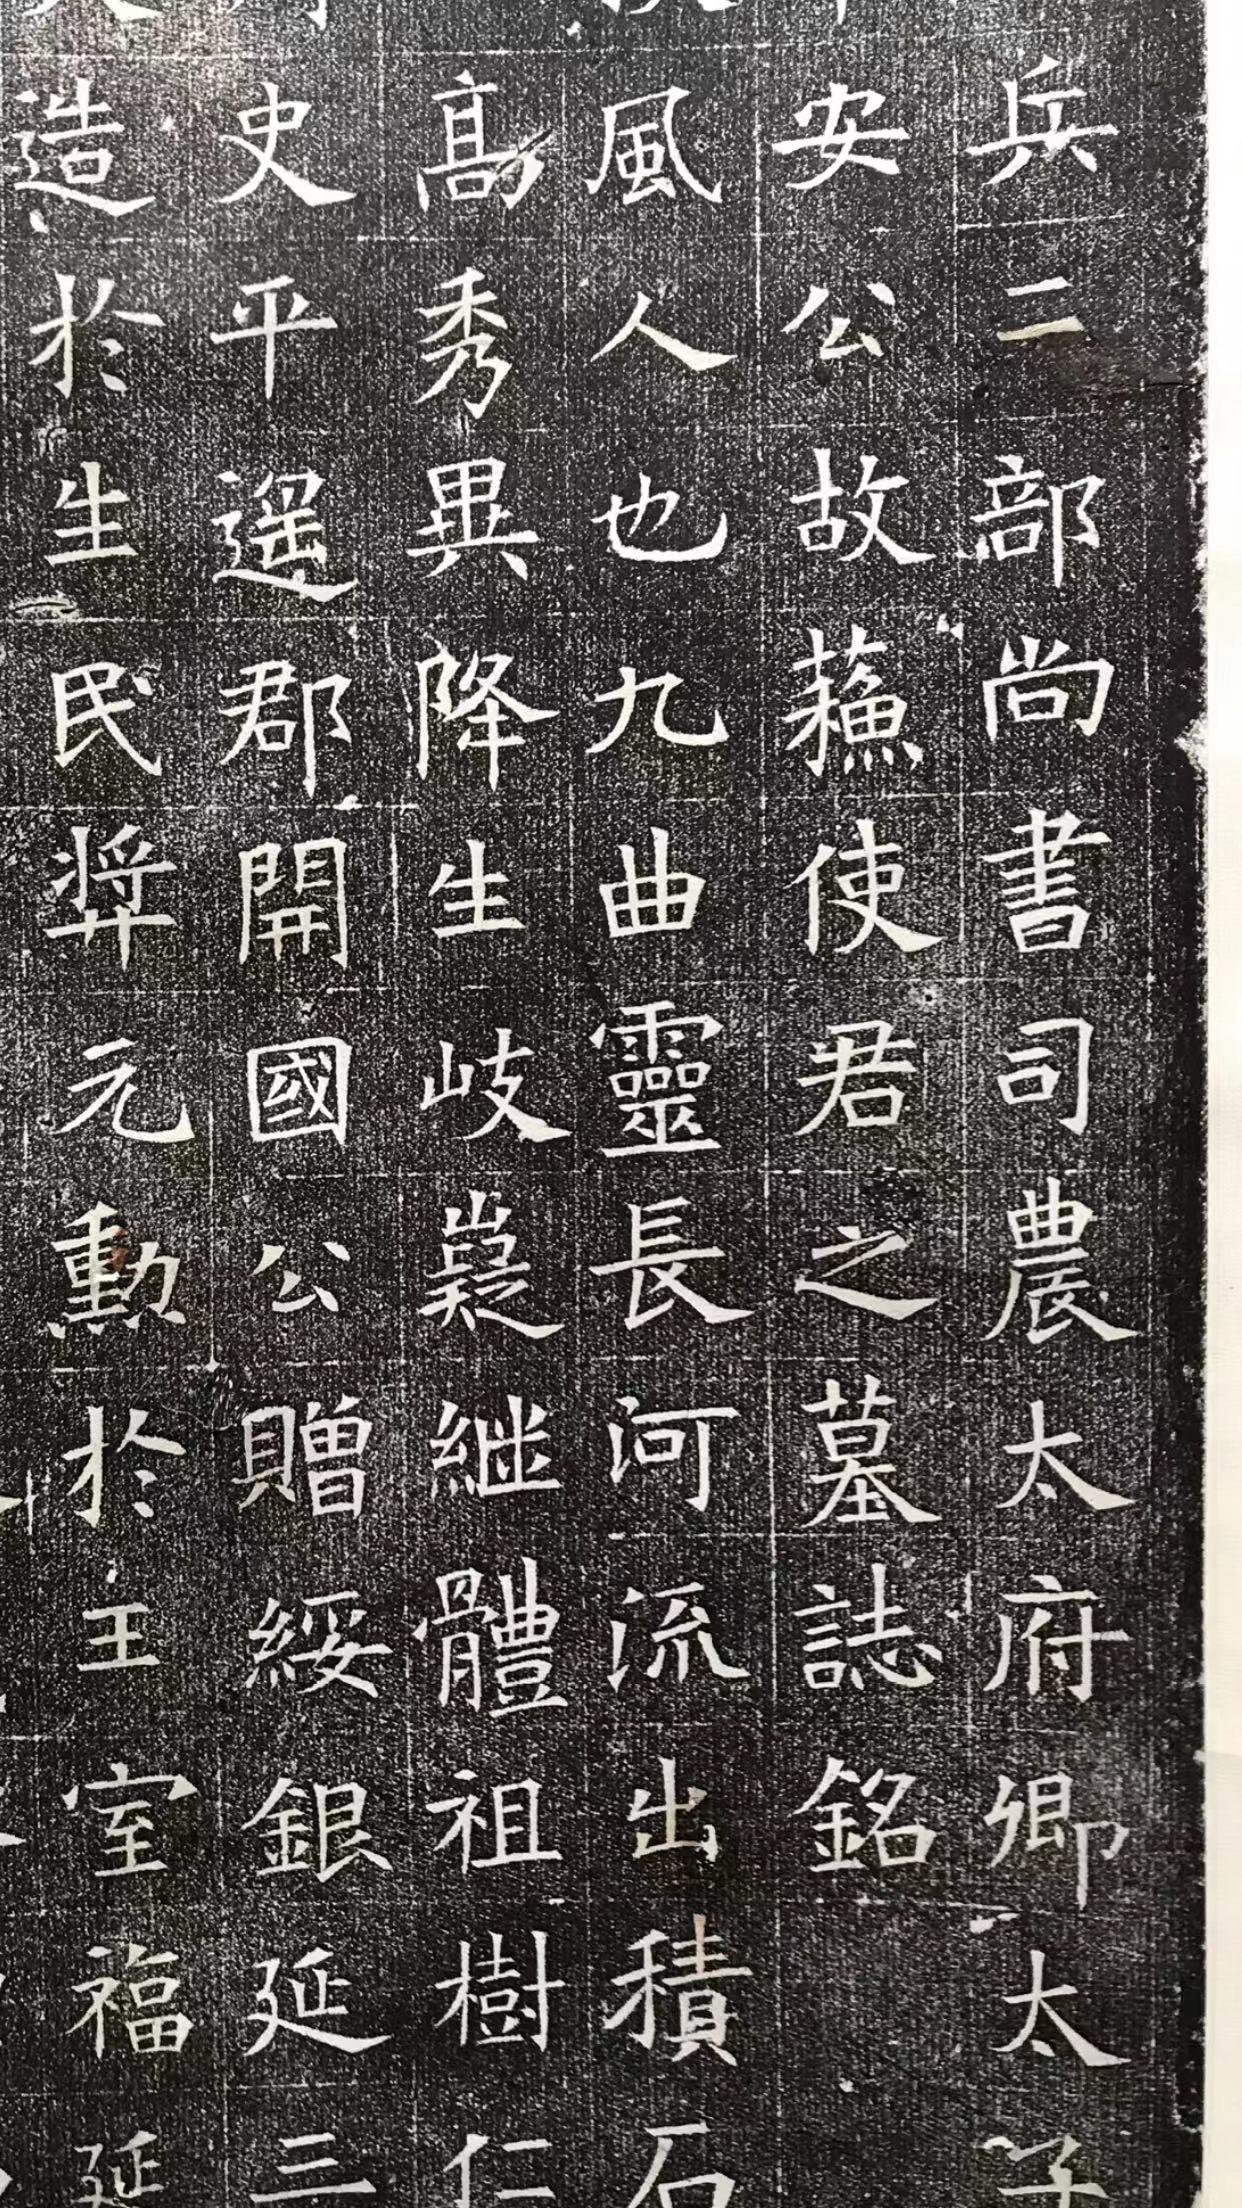 兵二部尚書司農太府卿太子
安公故蘓使君之墓誌銘
風人也九曲靈長河流出積石
髙秀異降生岐嶷継體祖樹仁
史平遥郡開國公贈綏銀延三
造於生民弉元勳於王室福延